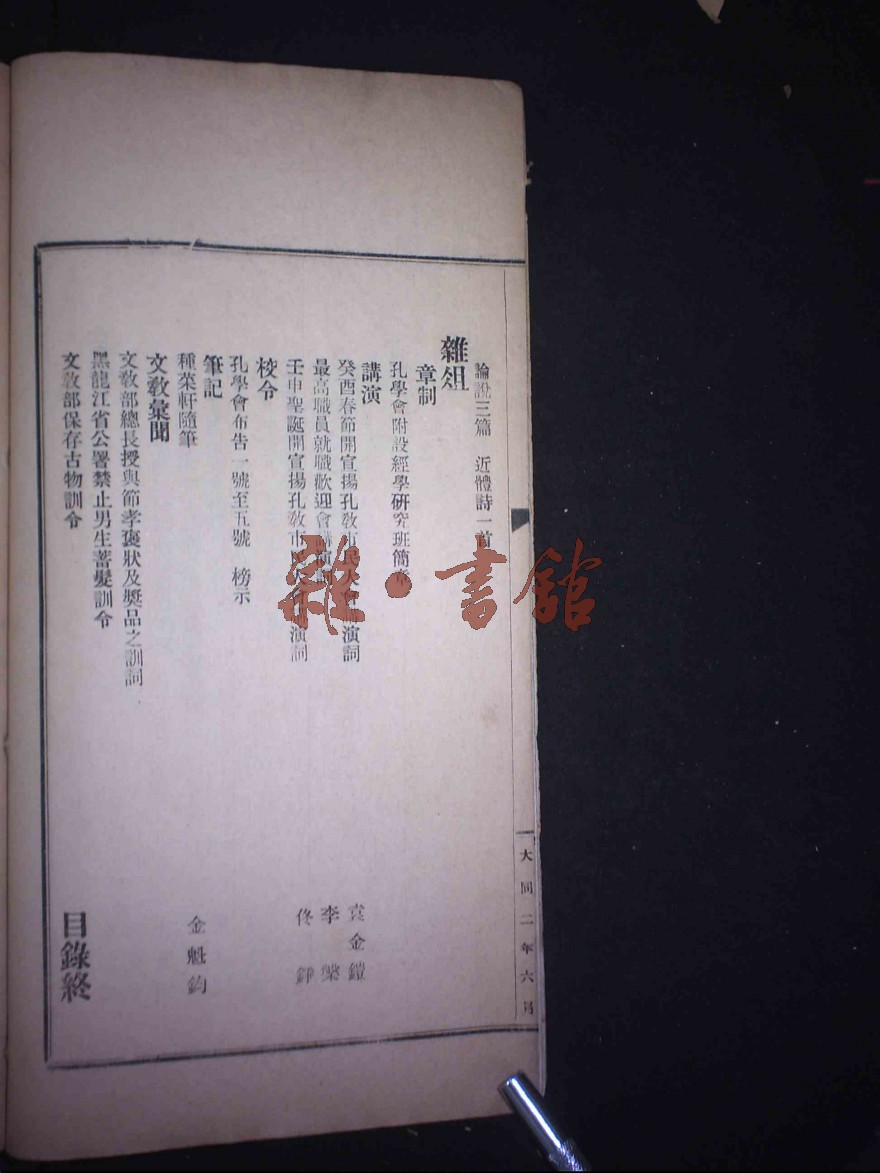 論說三篇　近體詩一首
雜俎
章制
孔學會附設經學研究班簡章
講演
癸酉春節開宣揚孔教市民大會講演詞　袁金鎧
最高職員就職歡迎會講演詞　李
壬申聖誕開宣揚孔教市民大會講演詞　佟
校令
孔學會布告一號至五號　榜示
筆記
種菜軒隨筆　金魁鈞
文教彙聞
文教部總長授與節孝褒狀及獎品之訓詞
黑龍江省公署禁止男生蓄髮訓令
文教部保存古物訓令
目錄終
大同二年六月
雜·書館